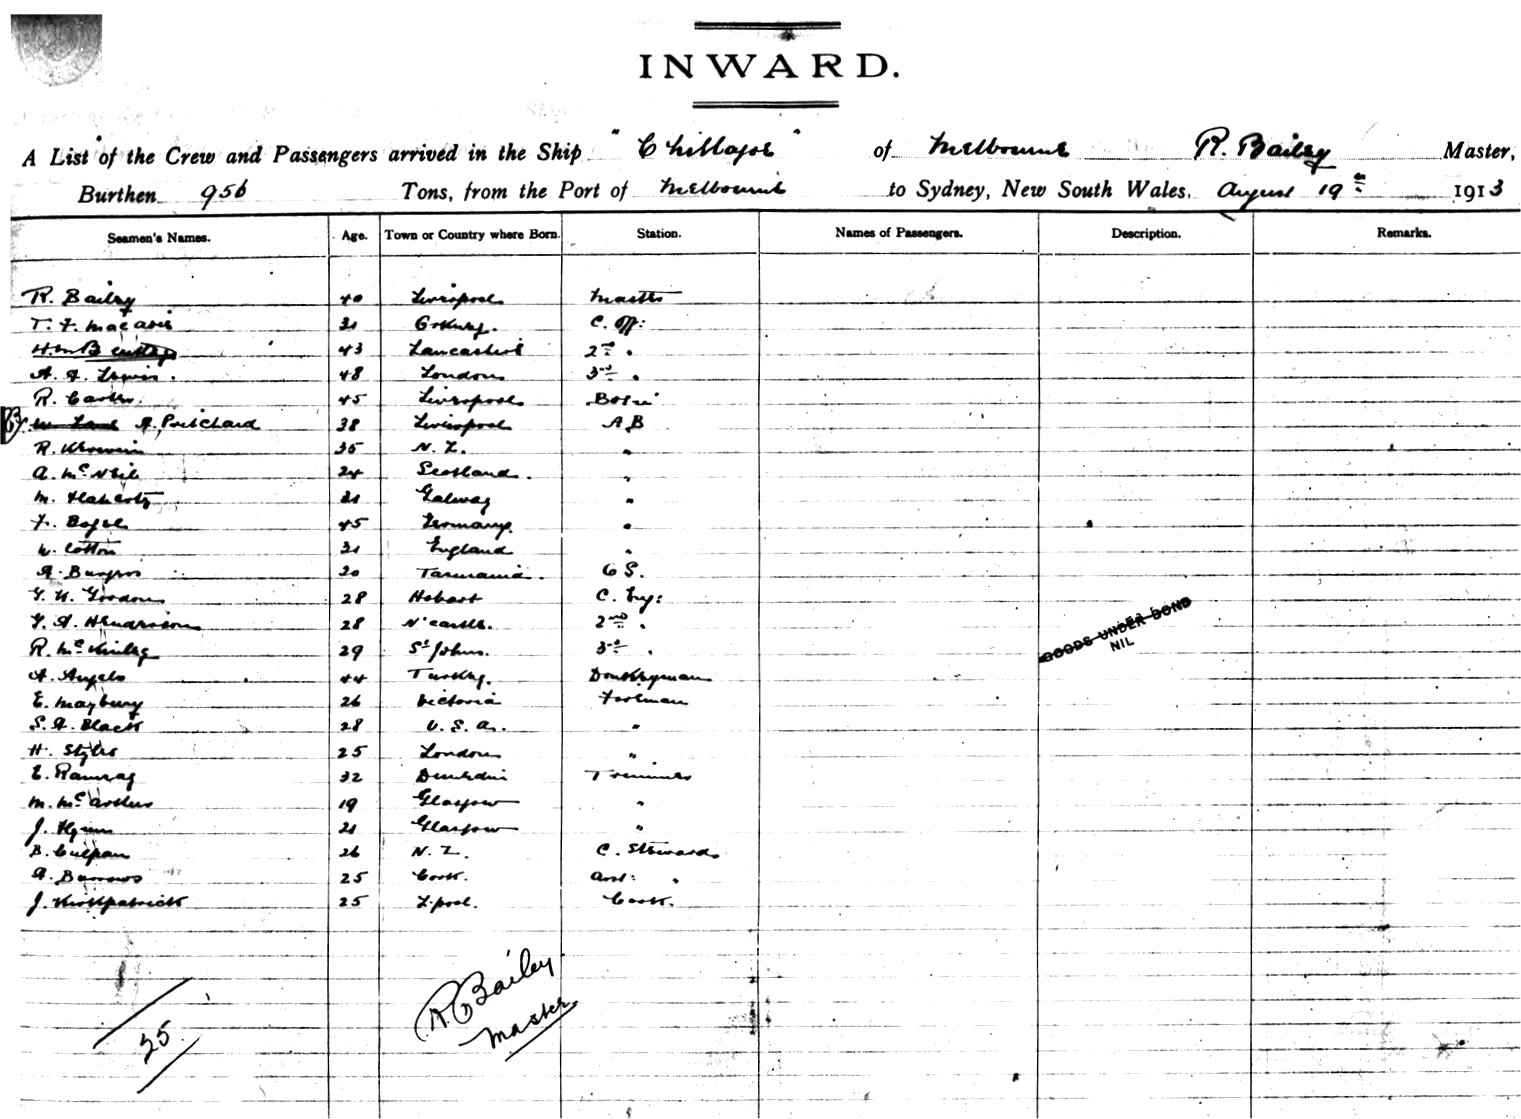 INWARD.
A List of the Crew and Passengers arrived in the Ship "Chillagoe" of Melbourne R. Bailey Master,
Burthen 956 Tons, from the Port of Melbourne to Sydney, New South Wales, August 19th 1913
Seamen's Names. Age. Town or Country where Born. Station. Names of Passengers. Description. Remarks.
R. Bailey 40 Liverpool Master
T. F. 31 C. Off:
H. 43 Lancashire 2nd "
A. A. Lewis. 48 London 3rd "
R. Carter. 45 Liverpool Bosn
A. Pritchard 38 Liverpool A B
R. 35 N. Z. "
A. McNeil 24 Scotland. "
M. Flaherty 21 Galway "
F. 45 Germany. "
W. Cotton 21 England "
A. Burgess 20 Tasmania. O S.
G. H. Gordon 28 Hobart C. Eng:
G. A. Hendrickson 28 N'castle. 2nd "
R. McKinley 29 St Johns. 3rd "
A. Angelo 44 Turkey. Donkeyman
E. Maybury 26 Victoria Fireman
S. A. Black 28 U. S. A. "
H. Styles 25 London "
E. Ramsay 32 Dunedin Trimmer
M. McArthur 19 Glasgow "
J. Flynn 21 Glasgow "
B. Culpan 26 N. Z. C. Steward
A. Burrows 25 Cork. Asst: "
J. Kirkpatrick 25 L'pool. Cook.
GOODS UNDER BOND
NIL
25
R Bailey
Master